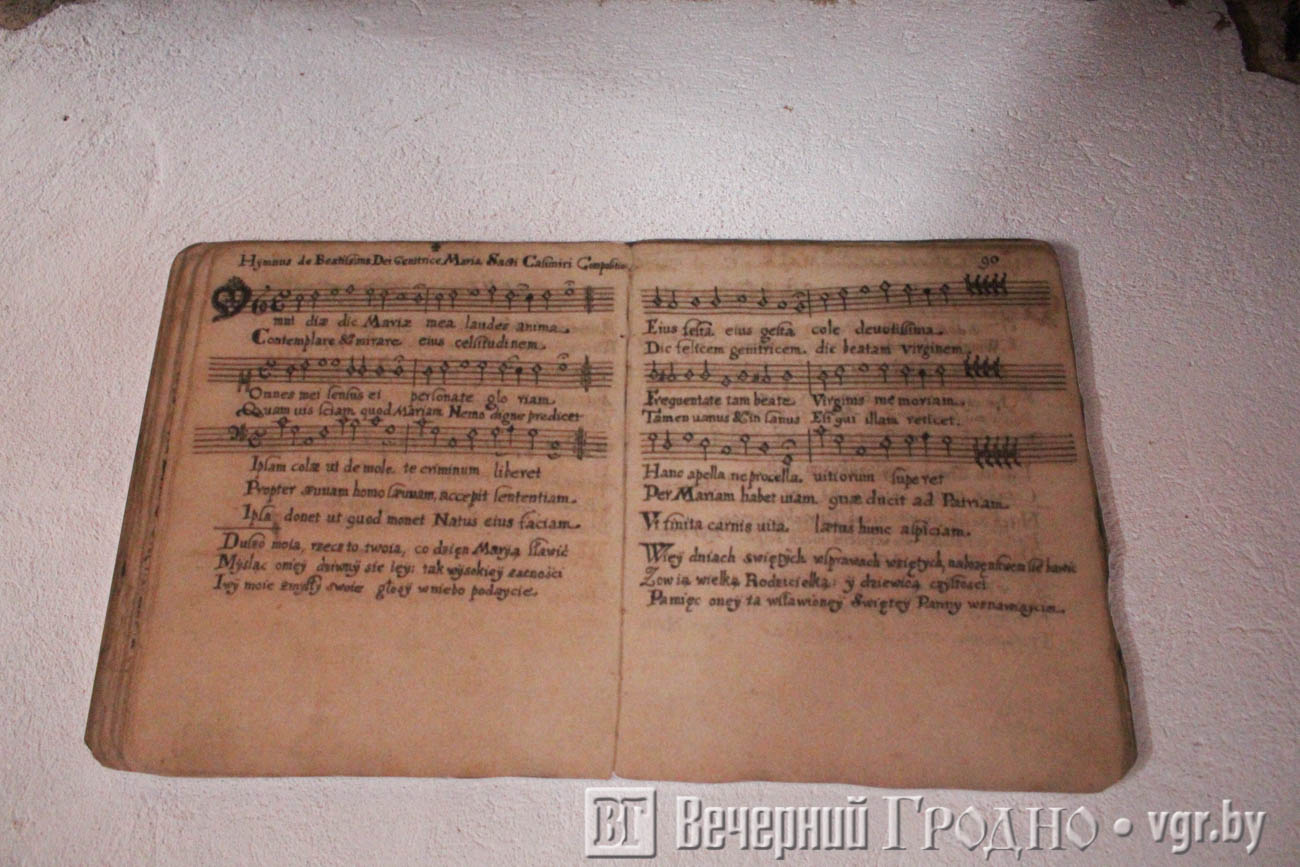 Hymnus de Beatissima Dei Genitrice Maria Sacti Casimiri Compositus
Omni diæ dic Mariæ mea laudes anima.
Contemplare & mirare eius celsitudinem.
Omnes mei sensus ei personate glo riam.
Quam uis sciam quod Mariam Nemo digne predicet
Ipsam colæ ut de mole. te criminum liberet
Propter æuuam homo sæuuam, accepit sententiam.
Ipsa donet ut quod monet Natus eius faciam.
Duszo moia, rzecz to twoia, co dzięn Maryą sławić
Myśląc oney dziwny się iey: tak wysokiey zacności
Iwy moie zmysły swoie głosy wniebo podaycie.
90
Eius festa eius gesta cole deuotissima.
Dic felicem genitricem. dic beatam virginem.
Frequentate tam beate Virginis memoriam.
Tamen uanus & in sanus Est qui illam reticet.
Hanc apella ne procella. uitiorum superet
Per Mariam habet uiam quæ ducit ad Patriam.
Vt finita carnis uita lætus hunc aspiciam.
Wiey dniach swiętych wsprawach wziętych, nabozenstwem się bawic
Zowią wielką Rodzicielką: y dziewicą czystości
Pamięc oney ta wsławioney Świętey Panny wznawiaycie.
ВГ Вечерний Гродно • vgr.by